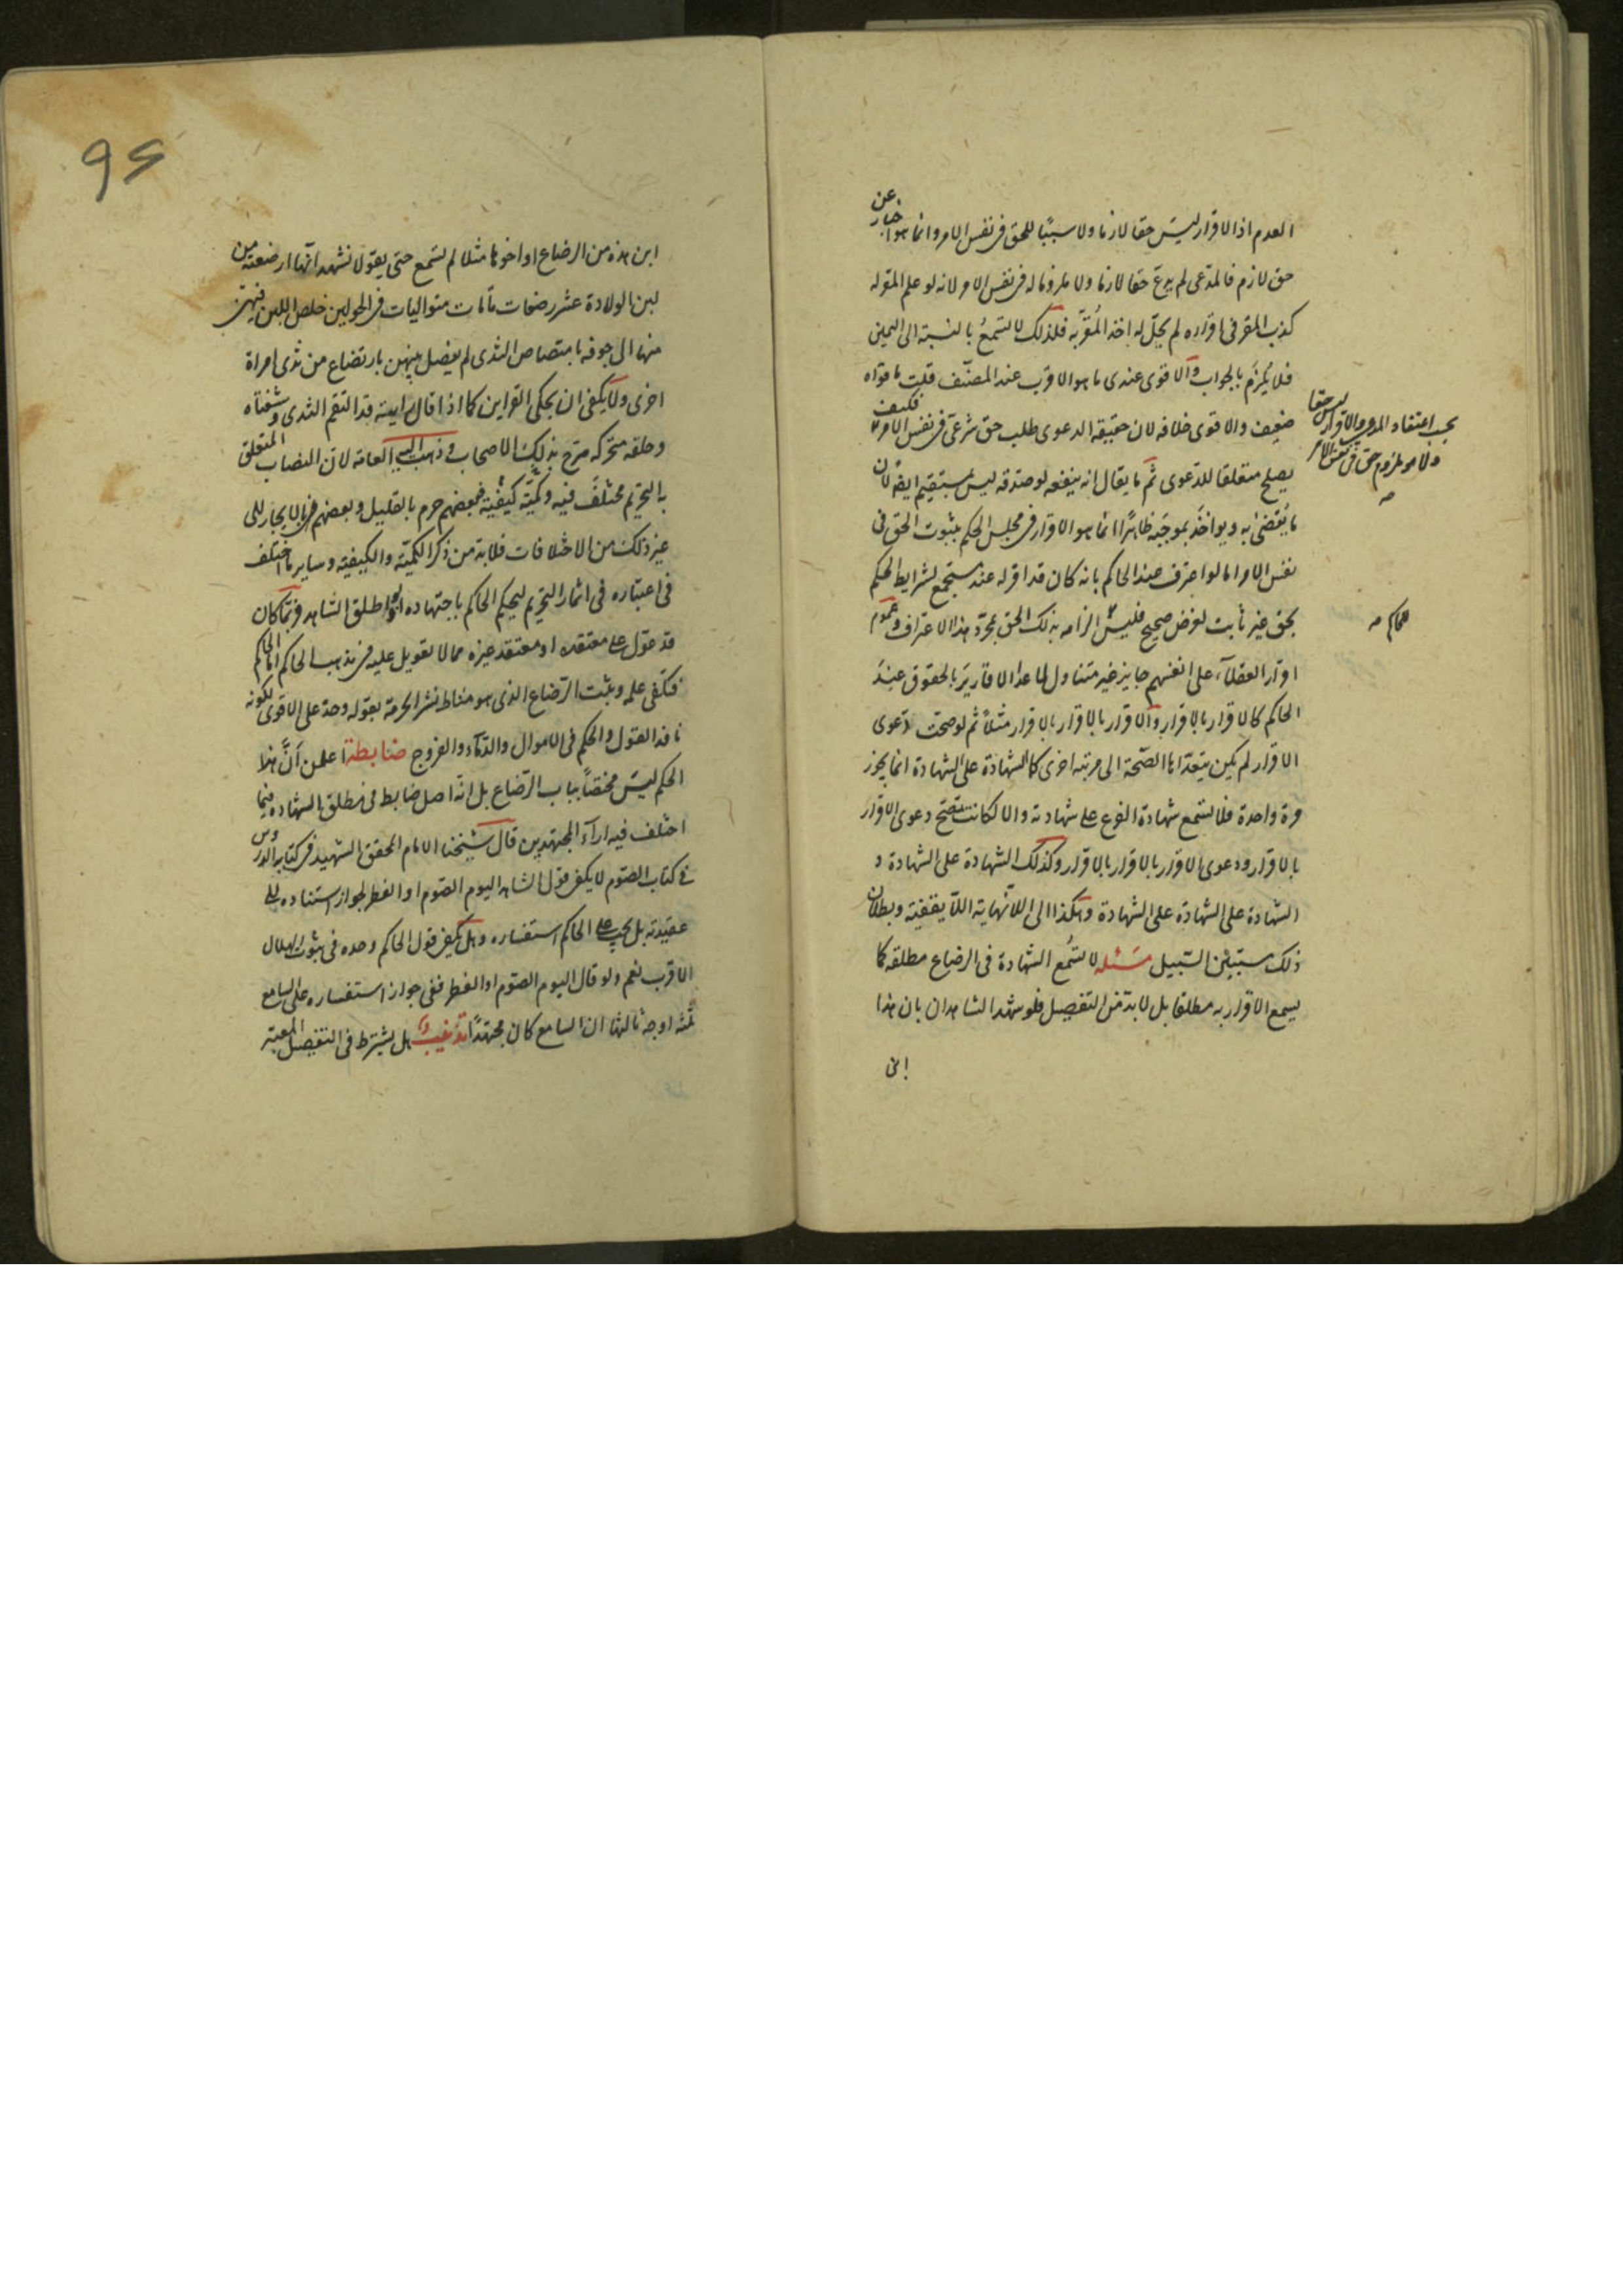 العدم اذ الاقرار ليس حقا لازما ولا سببًا للحق فى نفس الامر وانما هو اخبار عن
حق لازم فالمدعى لم يدع حقا لازما ولا ملزوما له فى نفس الامر لانه لو علم المقر له
كذب المقر فى اقراره لم يحل له اخذ المُقرّ به فلذلك لا تسمعُ بالنسبة الى اليمين
فلا يُلزَم بالجواب والاقوى عندى ما هو الاقرب عند المصنّف قلت ما قواه
ضعيف والاقوى خلافه لان حقيقة الدعوى طلب حق شرعى فى نفس الامر فكيف
يصلح متعلقا للدعوى ثم ما يقال انه ينفعه لو صدقه ليس بمستقيم ايضًا لان
ما يُقضىٰ به ويواخَذ بموجَبه ظاهرًا انما هو الاقرار فى مجلس الحكم بثبوت الحق فى
نفس الامر اما لو اعترف عند الحاكم بانه كان قد اقر له عند مستجمع لشرايط الحكم
بحق غير ثابت لغرض صحيح فليس الزامه بذلك الحق بمجرّد هذا الاعتراف وعموم
اقرار العقلاء على انفسهم جايز غير متناول لما عدا الاقارير بالحقوق عندَ
الحاكم كالاقرار بالاقرار والاقرار بالاقرار بالاقرار مثلاً ثم لو صحت دعوى
الاقرار لم يكن يتعدّاها الصّحة الى مرتبه اخرى كالشهادة على الشهادة انما يجوز
مرة واحدة فلا تسمع شهادة الفرع على شهادته والا لكانت تصّح دعوى الاقرار
بالاقرار ودعوى الاقرار بالاقرار بالاقرار وكذلك الشهادة على الشهادة و
الشهادة على الشهادة على الشهادة وهكذا الى اللانهاية اللايقفيّة وبطلان
ذلك مستبين السّبيل مسئله لا تسُمع الشهادة فى الرضاع مطلقه كما
يسمع الاقرار به مطلقا بل لابدّ من التفصيل فلو شهد الشاهدان بان هذا
ابن
بحسب اعتقاد المدعى والاقرار ليس حقا
ولا هو ملزوم حق فى نفس الامر
صه
للحاكم صه
ابن هذه من الرضاع او اخوها مثلا لم تسمع حتى يقولا نشهد انها ارضعته من
لبن الولادة عشر رضعات تامات متواليات فى الحولين خلص اللبن فيهن
منها الى جوفه بامتصاص الثدى لم يفصل بينهن بارتضاع من ثدى امراة
اخرى ولا يكفى ان يحكى القراين كما اذا قال رايته قد التقم الثدى وشفتاه
وحلقه متحركه صرح بذلك الاصحاب وذهبت اليه العامه لان النصاب المتعلق
به التحريم مختلفٌ فيه وكميّة كيفيّة فبعضهم حرم بالقليل وبعضهم بالايجار الى
غير ذلك من الاختلافات فلابد من ذكر الكميّة والكيفيّة وساير ما اختلف
فى اعتباره فى اثمار التحريم ليحكم الحاكم باجتهاده اذ لو اطلق الشاهد فربّما كان
قد عوّل على معتقده او معتقد غيره مما لا تعويل عليه فى مذهب الحاكم اما الحاكم
فيكفى علمه ويثبت الرّضاع الذى هو مناط نشر الحرمة بقوله وحده على الاقوى لكونه
نافذ القول والحكم فى الاموال والدّماء والفروج ضابطة اعلمن اَنّ هذا
الحكم ليس مختصاً بباب الرّضاع بل انه اصل ضابط فى مطلق الشهاده فيما
اختلف فيه اراء المجتهدين قال شيخنا الامام المحقق الشهيد فى كتابه الدروس
فى كتاب الصّوم لا يكفى قول الشاهد اليوم الصّوم او الفطر لجواز استناده الى
عقيدته بل يجب على الحاكم استفساره وهل يكفى قول الحاكم وحده فى ثبوت الهلال
الاقرب نعم ولو قال اليوم الصّوم او الفطر ففى جواز استفساره على السامع
ثلثه اوجه ثالثها ان السامع كان مجتهدًا تذنيبٌ هل يشترط فى التفصيل المعتبر